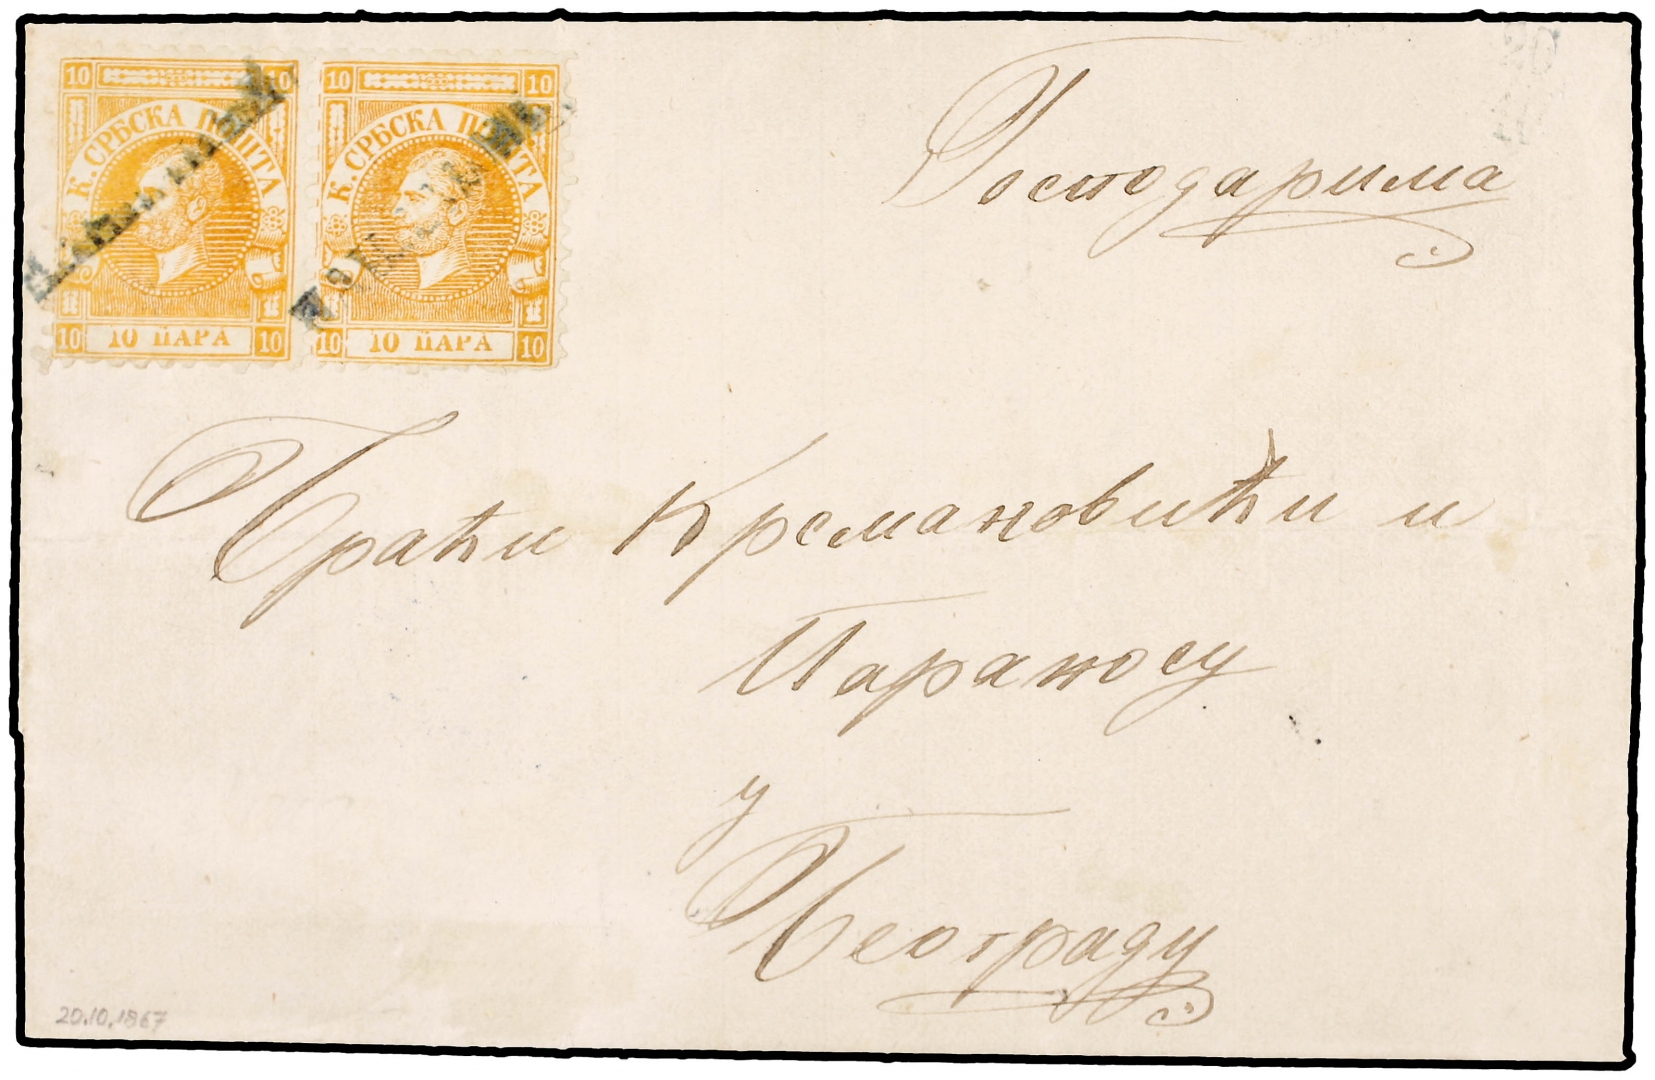 10 10
К. СРБСКА ПОШТА
10 10 ПАРА 10
10 10
К. СРБСКА ПОШТА
10 10 ПАРА 10
Господарима
Браћи Крсмановићи и
Параносу
у
Београду
20.10.1867